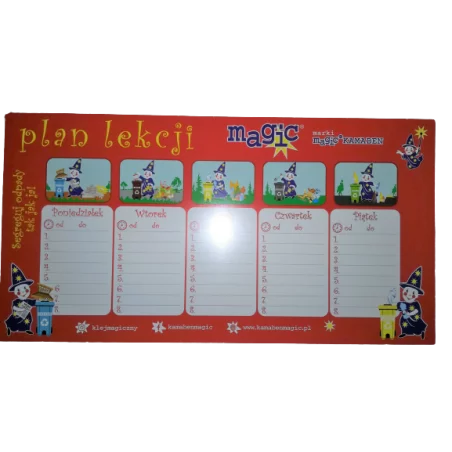 plan lekcji
magic
marki
magic KAMABEN
Segreguj odpady
tak jak ja!
Poniedziałek
od do
1.
2.
3.
4.
5.
6.
7.
8.
Wtorek
od do
1.
2.
3.
4.
5.
6.
7.
8.
od do
1.
2.
3.
4.
5.
6.
7.
8.
Czwartek
od do
1.
2.
3.
4.
5.
6.
7.
8.
Piątek
od do
1.
2.
3.
4.
5.
6.
7.
8.
klejmagiczny
kamabenmagic
www.kamabenmagic.pl